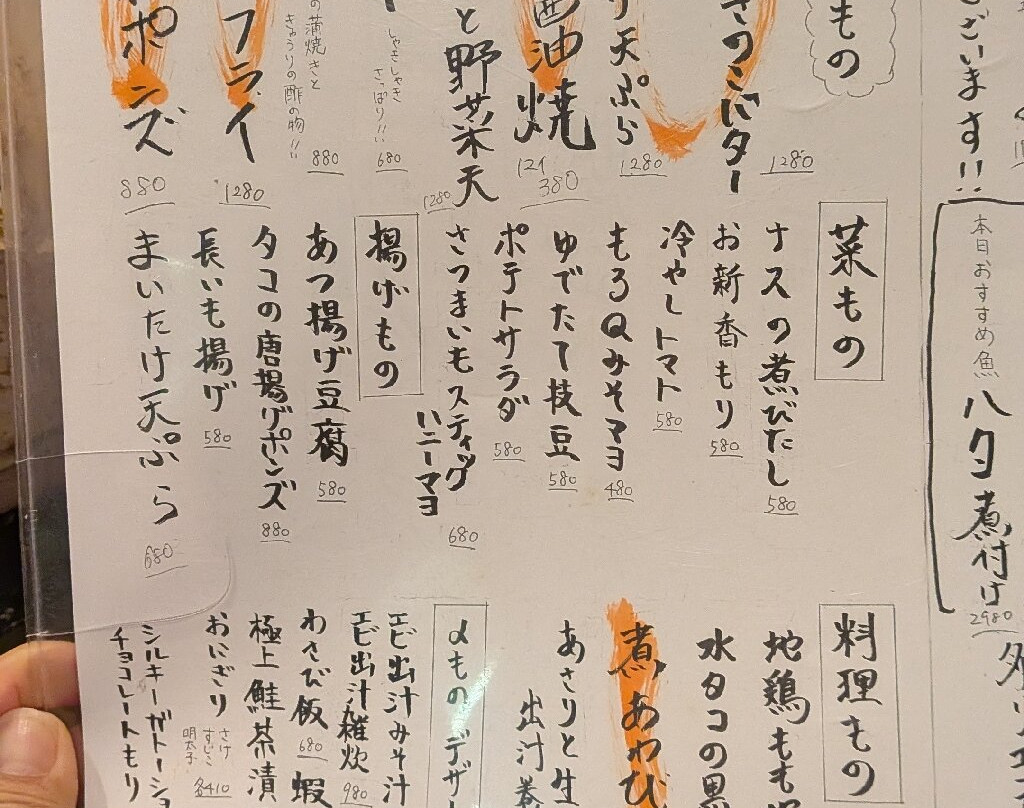 ございます!!
本日おすすめ魚
ハタコ煮付け
2980
もの
きのこバター
1280
り天ぷら
1280
油焼
380
と野菜天
1280
しゃきしゃき
さっぱり!!
680
の蒲焼きと
きゅうりの酢の物!!
880
フライ
1280
ポンズ
880
菜もの
ナスの煮びたし
580
お新香もり
580
冷やしトマト
580
もろQみそマヨ
480
ゆでたて枝豆
580
ポテトサラダ
580
さつまいもスティック
ハニーマヨ
680
揚げもの
あつ揚げ豆腐
580
タコの唐揚げポンズ
880
長いも揚げ
580
まいたけ天ぷら
680
料理もの
地鶏もも
水タコの
煮あわび
あさりと生
出汁巻
〆もの デザー
エビ出汁みそ汁
エビ出汁雑炊
980
わさび飯
680
蝦
極上鮭茶漬
おにぎり
さけ
すじこ
明太子
各410
シルキーガトーショ
チョコレートもり